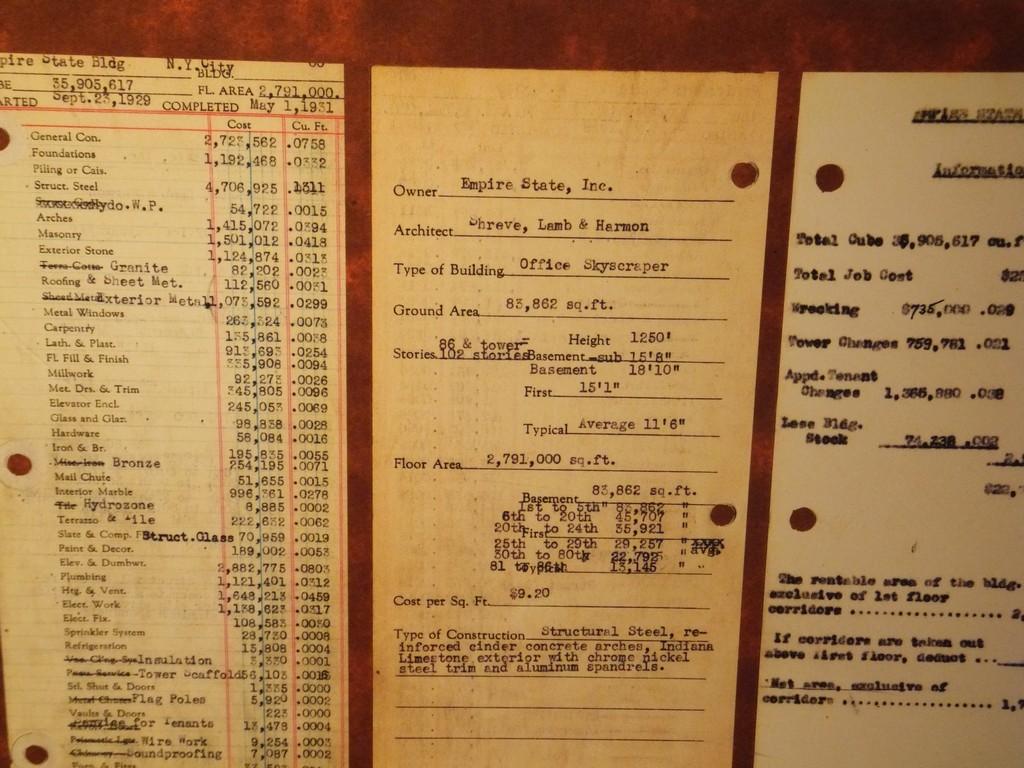 pire State Bldg N.Y.City
BLDG.
BE 35,905,617 FL. AREA 2,791,000.
ARTED Sept.23,1929 COMPLETED May 1,1931
Cost Cu. Ft.
General Con. 2,723,562 .0758
Foundations 1,192,468 .0332
Piling or Cais.
Struct. Steel 4,706,925 .1311
Hydo.W.P. 54,722 .0015
Arches 1,415,072 .0394
Masonry 1,501,012 .0418
Exterior Stone 1,124,874 .0313
Terra Cotta Granite 82,202 .0023
Roofing & Sheet Met. 112,560 .0031
Sheet Metal Exterior Metal 1,073,592 .0299
Metal Windows 263,324 .0073
Carpentry 135,861 .0038
Lath. & Plast. 913,693 .0254
Fl. Fill & Finish 335,908 .0094
Millwork 92,273 .0026
Met. Drs. & Trim 345,805 .0096
Elevator Encl. 245,053 .0069
Glass and Glaz. 98,838 .0028
Hardware 58,084 .0016
Iron & Br. 195,835 .0055
Misc. Iron Bronze 254,195 .0071
Mail Chute 51,655 .0015
Interior Marble 996,361 .0278
Tile Hydrozone 8,885 .0002
Terrazzo & Tile 222,632 .0062
Slate & Comp. F Struct.Glass 70,959 .0019
Paint & Decor. 189,002 .0053
Elev. & Dumbwr. 2,882,775 .0803
Plumbing 1,121,401 .0312
Htg. & Vent. 1,648,213 .0459
Elect. Work 1,138,623 .0317
Elect. Fix. 108,583 .0030
Sprinkler System 28,730 .0008
Refrigeration 15,808 .0004
Vac. Clng. Sys Insulation 3,330 .0001
Pneu. Service Tower Scaffold 56,103
Stl. Shut & Doors 1,335 .0000
Metal Chutes Flag Poles 5,920 .0002
Vaults & Doors 223 .0000
for Tenants 13,478 .0004
Prismatic Lgts. Wire Work 9,254 .0003
Chimney Soundproofing 7,087 .0002
Owner Empire State, Inc.
Architect Shreve, Lamb & Harmon
Type of Building Office Skyscraper
Ground Area 83,862 sq.ft.
86 & tower- Height 1250'
Stories 102 stories Basement-sub 15'8"
Basement 18'10"
First 15'1"
Typical Average 11'6"
Floor Area 2,791,000 sq.ft.
Basement 83,862 sq.ft.
1st to 5th" 83,862 "
6th to 20th 45,707 "
20th to 24th 35,921 "
First
25th to 29th 29,257 "
30th to 80th 22,792 " avg.
81 to 86th 13,145 "
Typical
Cost per Sq. Ft. $9.20
Type of Construction Structural Steel, re-
inforced cinder concrete arches, Indiana
Limestone exterior with chrome nickel
steel trim and aluminum spandrels.
EMPIRE STATE
Informatio
Total Cube 35,905,617 cu.f
Total Job Cost
Wrecking $735,000 .029
Tower Changes 759,781 .021
Appd.Tenant
Changes 1,365,880 .038
Less Bldg.
Stock 74,238 .002
The rentable area of the bldg.
exclusive of 1st floor
corridors .................. 2,
If corridors are taken out
above first floor, deduct ...
Net area, exclusive of
corridors .................. 1,7